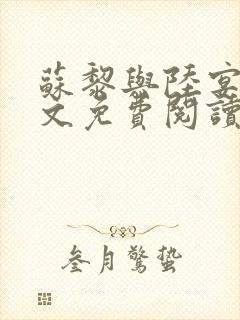 蘇黎與陸宴
文免費閱讀
叁月驚蟄